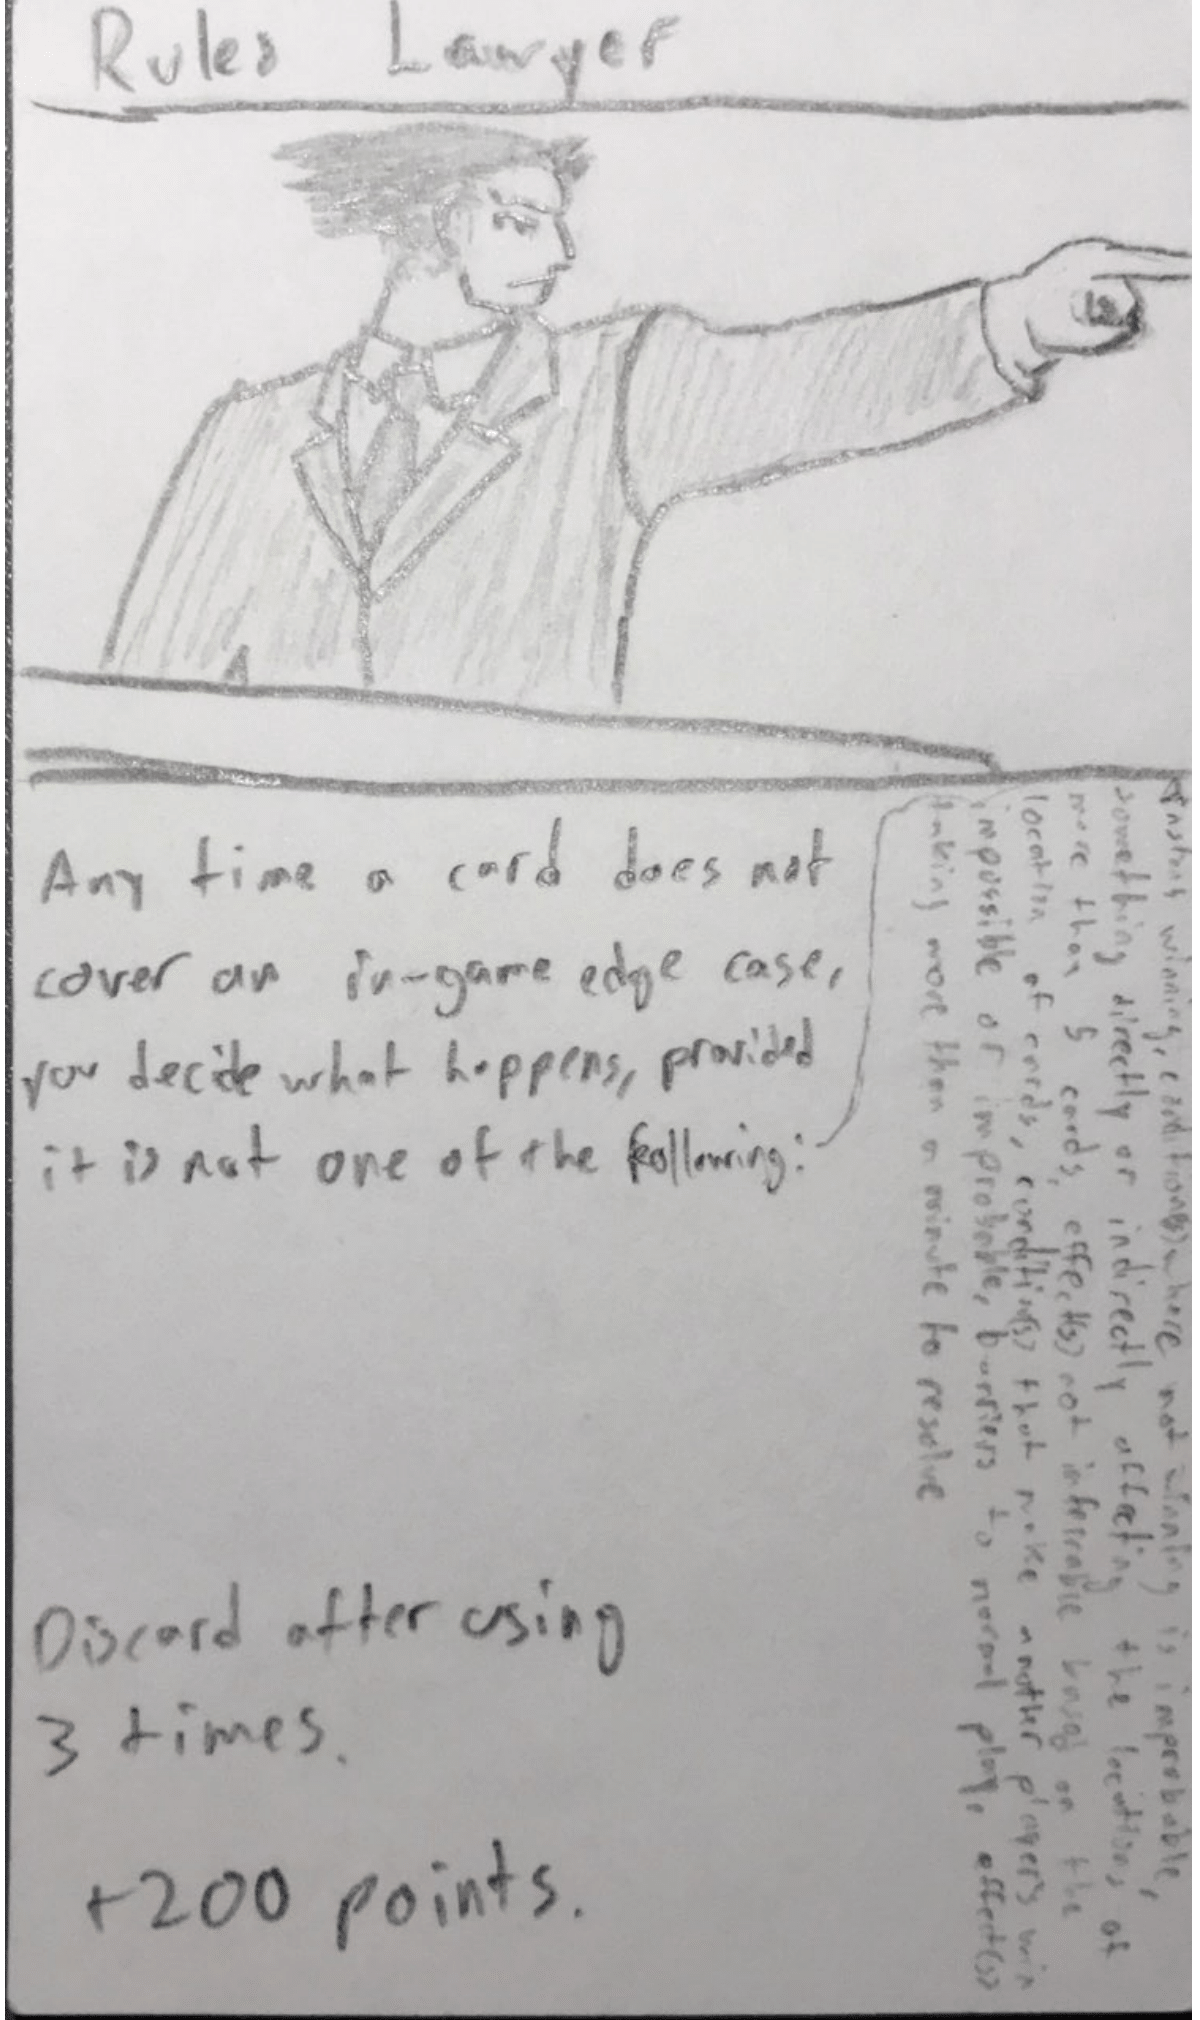 Rules Lawyer
Any time a card does not
cover an in-game edge case,
you decide what happens, provided
it is not one of the following:
winning, condition(s) where not winning is improbable,
something directly or indirectly affecting the locations of
more than 5 cards, effect(s) not inferrable based on the
location of cards, condition(s) that make another player's win
impossible or improbable, barriers to normal play, effect(s)
taking more than a minute to resolve
Discard after using
3 times.
+200 points.